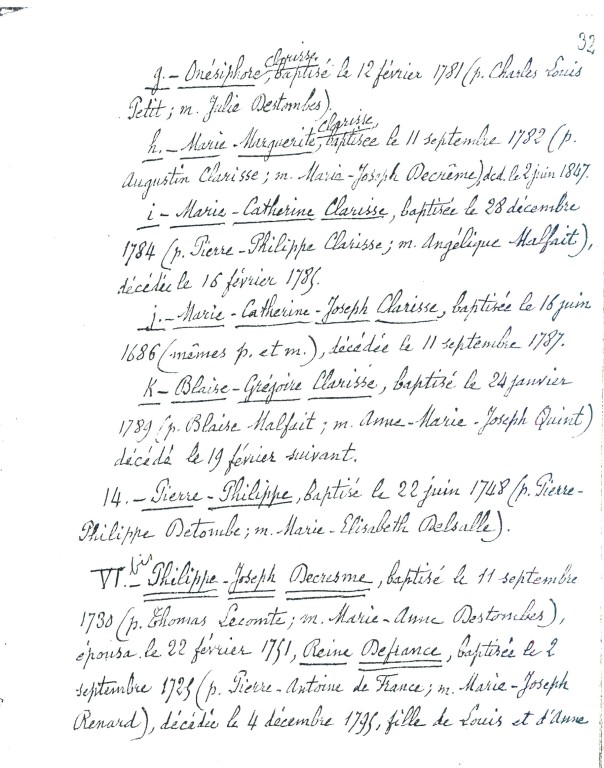 32
g. - Onésiphore Clarisse, baptisé le 12 février 1781 (p. Charles Louis
Petit ; m. Julie Destombes).
h. - Marie-Marguerite Clarisse, baptisée le 11 septembre 1782 (p.
Augustin Clarisse ; m. Marie-Joseph Decrême), déd. le 2 juin 1847.
i - Marie-Catherine Clarisse, baptisée le 28 décembre
1784 (p. Pierre-Philippe Clarisse ; m. Angélique Malfait),
décédée le 16 février 1785.
j. - Marie-Catherine-Joseph Clarisse, baptisée le 16 juin
1686 (mêmes p. et m.), décédée le 11 septembre 1787.
K - Blaise-Grégoire Clarisse, baptisé le 24 janvier
1789 (p. Blaise Malfait ; m. Anne-Marie-Joseph Quint)
décédé le 19 février suivant.
14. - Pierre-Philippe, baptisé le 22 juin 1748 (p. Pierre-
Philippe Detombe ; m. Marie-Elisabeth Delsalle).
VI bis. - Philippe-Joseph Decresme, baptisé le 11 septembre
1730 (p. Thomas Lecomte ; m. Marie-Anne Destombes),
épousa le 22 février 1751, Reine Defrance, baptisée le 2
septembre 1725 (p. Pierre-Antoine de France ; m. Marie-Joseph
Renard), décédée le 4 décembre 1795, fille de Louis et d'Anne